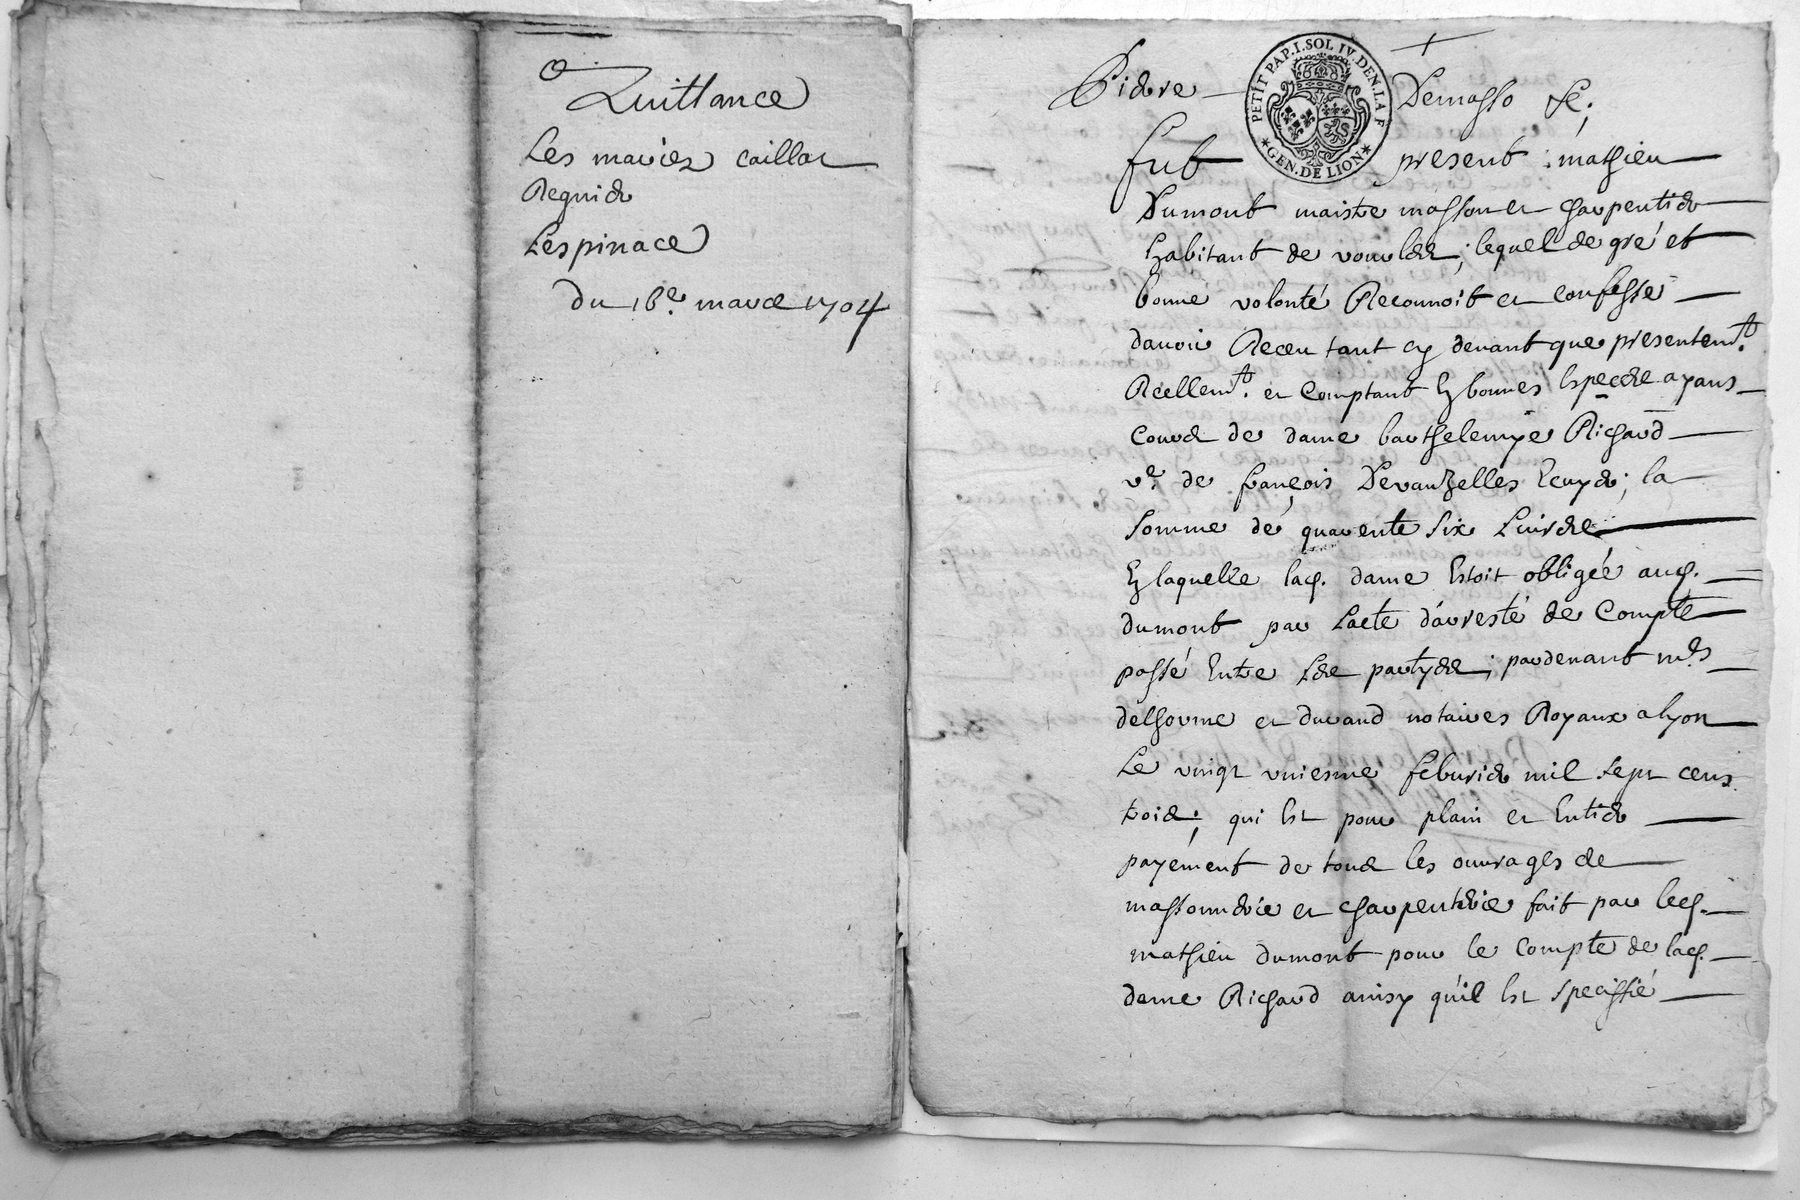 Quittance
Les mariez caillat
Regnier
Lespinace
du 16e. mars 1704
PETIT PAP. I. SOL IV. DEN. LA F
GEN. DE LION
Demasso
fut present mathieu
Dumont maistre masson et charpentier
habitant de lequel de gré et
bonne volonté Reconnoit et confesse
davoir Receu tant cy devant que presentemt.
Reellemt. et comptant En bonnes Especes ayans
cours de dame barthelemye Richard
ve. de françois Devauzelles Ecuyer; la
somme de quarente six Livres
En laquelle lad. dame Estoit obligée aud.
dumont par Lacte d'arresté de Compte
passé Entre Les partyes; pardevant mes
delhorme et durand notaires Royaux a lyon
Le vingt uniesme feburier mil sept cens
trois; qui Est pour plain et Entier
payement de tous les ouvrages de
massonnerie et charpenterie fait par led.
mathieu dumont pour le Compte de lad.
dame Richard ainsy qu'il Est speciffié